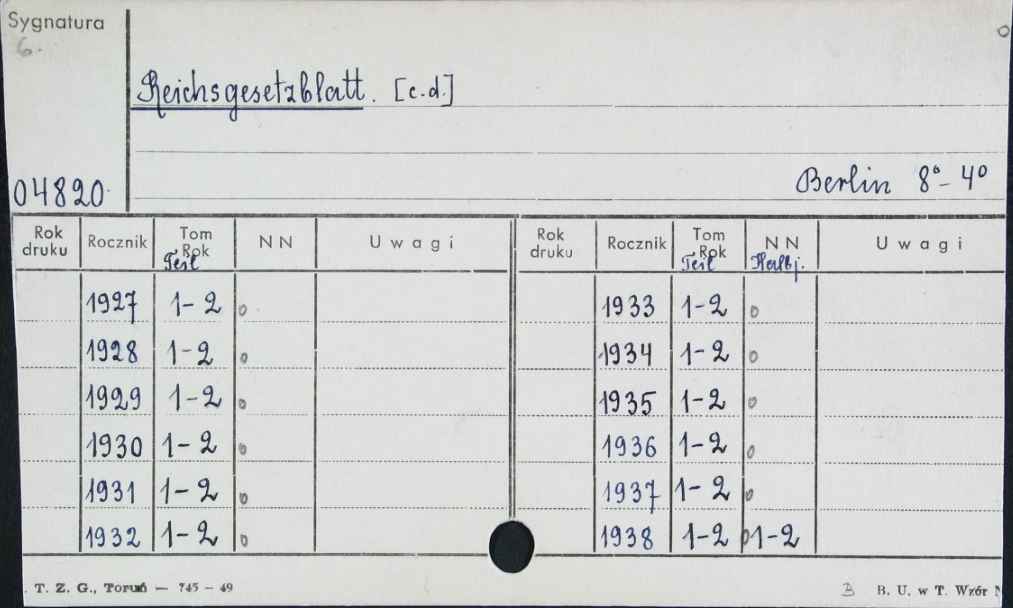 Sygnatura
6.
Reichsgesetzblatt. [c.d.]
04820
Berlin 8°-4°
Rok druku Rocznik Tom Rok Teil NN Uwagi Rok druku Rocznik Tom Rok Teil NN Halbj. Uwagi
1927 1-2 o 1933 1-2 o
1928 1-2 o 1934 1-2 o
1929 1-2 o 1935 1-2 o
1930 1-2 o 1936 1-2 o
1931 1-2 o 1937 1-2 o
1932 1-2 o 1938 1-2 o 1-2
T. Z. G., Toruń — 745 - 49 B B. U. w T. Wzór